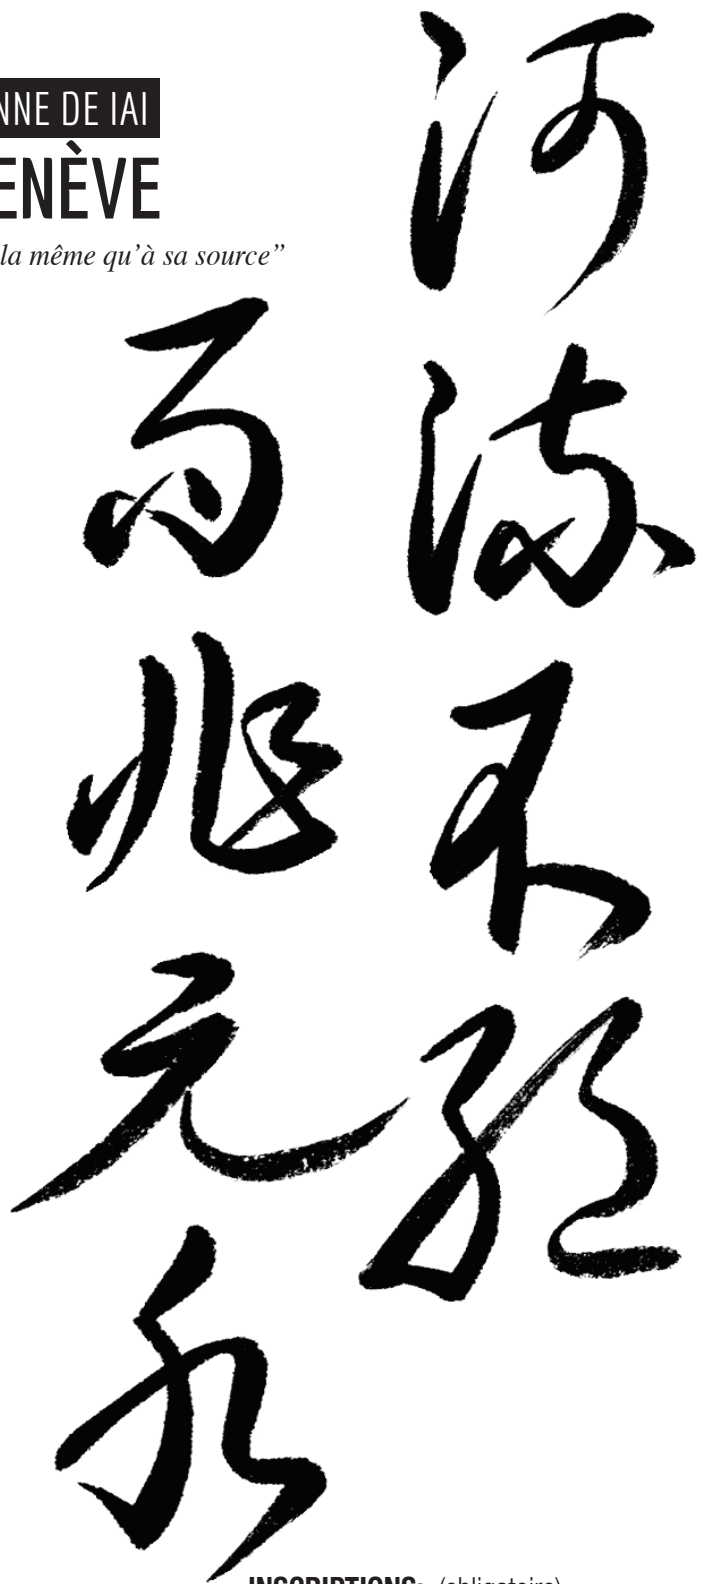 NNE DE IAI
ENÈVE
la même qu’à sa source”
河流不絶
而非元水
INSCRIPTIONS: (obligatoire)